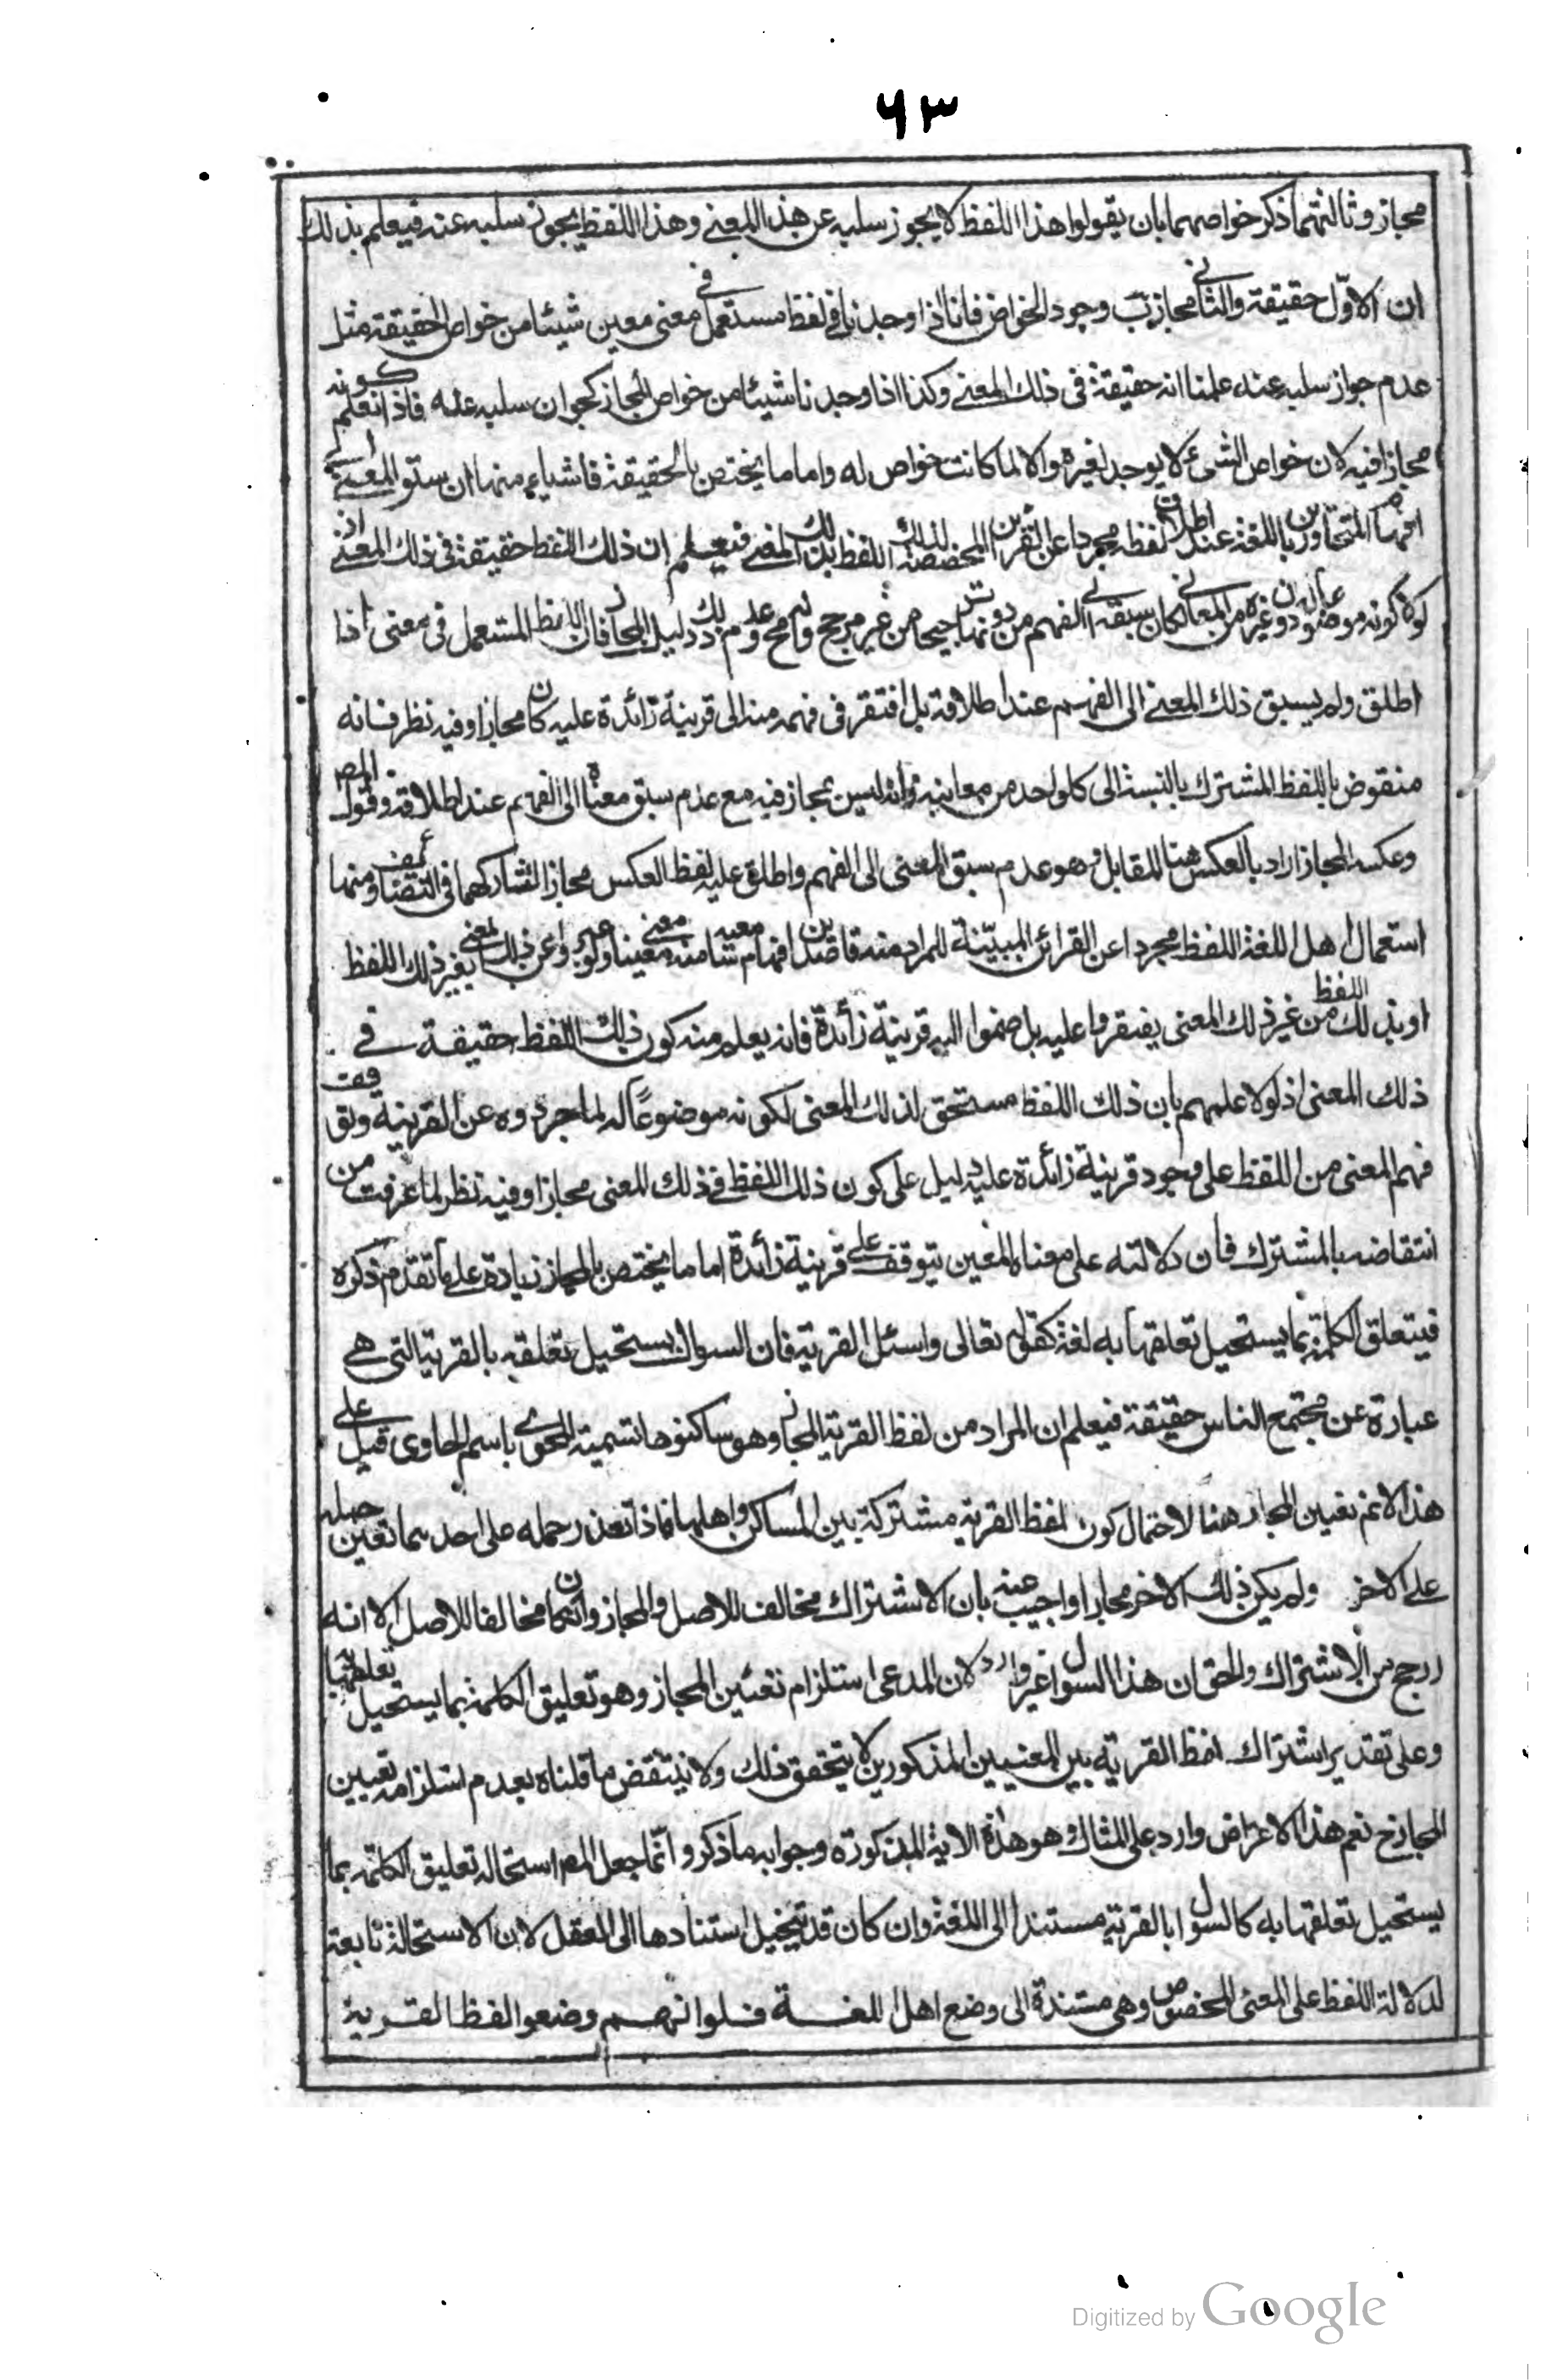 ٦٣
مجاز وثالثها ذكر خواصهما بان يقولوا هذا اللفظ لا يجوز سلبه عن هذا المعنى وهذا اللفظ يجوز سلبه عنه فيعلم بذلك
ان الاوّل حقيقة والثانى مجاز وجود الخواص فانا اذا وجدنا فى لفظ مستعمل فى معنى معين شيئا من خواص الحقيقة مثل
عدم جواز سلبه عنه علمنا انه حقيقة فى ذلك المعنى وكذا اذا وجدنا شيئا من خواص المجاز كجواز سلبه عنه فاذا نعلم كونه
مجازا فيه لان خواص الشئ لا يوجد لغيره والا لما كانت خواص له واما ما يختص بالحقيقة فاشياء منها ان سبق المعنى الى
افهام المتحاورين باللغة عند اطلاق لفظه مجردا عن القراين المخصصة لذلك اللفظ بذلك المعنى فيعلم ان ذلك اللفظ حقيقة فى ذلك المعنى اذ
لولا كونه موضوعا له دون غيره من المعانى لكان سبقه الى الفهم من دونها ترجيحا من غير مرجح وانه مح وعدم ذلك دليل المجاز فان اللفظ المستعمل فى معنى اذا
اطلق ولم يسبق ذلك المعنى الى الفهم عند اطلاقه بل افتقر فى فهمه منه الى قرينة زائدة عليه كان مجازا وفيه نظر فانه
منقوض باللفظ المشترك بالنسبة الى كل واحد من معانيه فانه ليس بمجاز فيه مع عدم سبق معناه الى الفهم عند اطلاقه وقول المص
وعكسه المجاز اراد بالعكس هنا المقابل وهو عدم سبق المعنى الى الفهم واطلق عليه لفظ العكس مجازا لتشاركهما فى ومنها
استعمال اهل اللغة اللفظ مجردا عن القرائن المبيّنة للمراد منه قاصدين افهام معنى معينا ولو عبروا عن ذلك المعنى بغير ذلك اللفظ
او بذلك اللفظ من غير ذلك المعنى يفتقروا عليه بل ضموا اليه قرينة زائدة فانه يعلم منه كون ذلك اللفظ حقيقة فى
ذلك المعنى اذ لولا علمهم بان ذلك اللفظ مستحق لذلك المعنى لكونه موضوعاً له لما جردوه عن القرينة وتوقف
فهم المعنى من اللفظ على وجود قرينة زائدة عليه دليل على كون ذلك اللفظ فى ذلك المعنى مجازا وفيه نظر لما عرفت من
انتقاضه بالمشترك فان دلالته على معناه المعين يتوقف على قرينة زائدة اما ما يختص بالمجاز زيادة على ما تقدم ذكره
فيتعلق الكلمة بما يستحيل تعلقها به لغة كقوله تعالى واسئل القرية فان السوال يستحيل تعلقه بالقرية التى هى
عبارة عن مجتمع الناس حقيقة فيعلم ان المراد من لفظ القرية المجاز وهو ساكنوها تسمية المحوى باسم الحاوى قيل على
هذا لانم تعين المجاز هنا لاحتمال كون لفظ القرية مشتركة بين المساكن واهلها فاذا تعذر حمله على احدهما تعين حمله
على الاخر ولم يكن ذلك الاخر مجازا واجيب عنه بان الاشتراك مخالف للاصل والمجاز وان كان مخالفا للاصل الا انه
ارجح من الاشتراك والحق ان هذا السوال غير وارد لان المدعى استلزام تعين المجاز وهو تعليق الكلمة بما يستحيل تعلقها به
وعلى تقدير اشتراك لفظ القرية بين المعنيين المذكورين لا يتحقق ذلك ولا ينتقض ما قلناه بعدم استلزامه تعيين
المجاز ح نعم هذا الاعراض وارد على المثال وهو هذه الاية المذكورة وجوابه ما ذكر وانّما جعل المص استحالة تعليق الكلمة بما
يستحيل تعلقها به كالسوال بالقرية مستندا الى اللغة وان كان قد يتخيل استنادها الى العقل لان الاستحالة تابعة
لدلالة اللفظ على المعنى المخصوص وهى مستندة الى وضع اهل اللغة فلو انهم وضعوا لفظ القرية
Digitized by Google